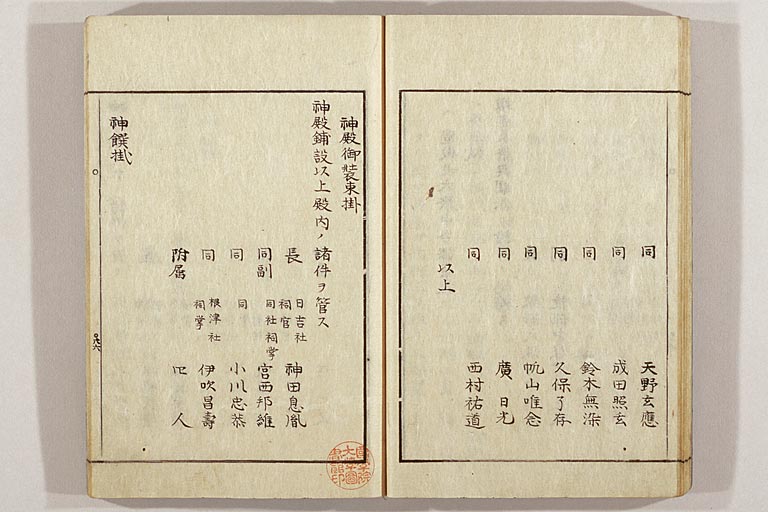 同 天野玄應
同 成田照玄
同 鈴木無染
同 久保了存
同 帆山唯念
同 廣日光
同 西村祐道
以上
神殿御装束掛
神殿鋪設以上殿内ノ諸件ヲ管ス
長 日吉社祠官 神田息胤
同副 同社祠掌 宮西邦維
同 同 小川忠恭
同 根津社祠掌 伊吹昌壽
附属 四人
神饌掛